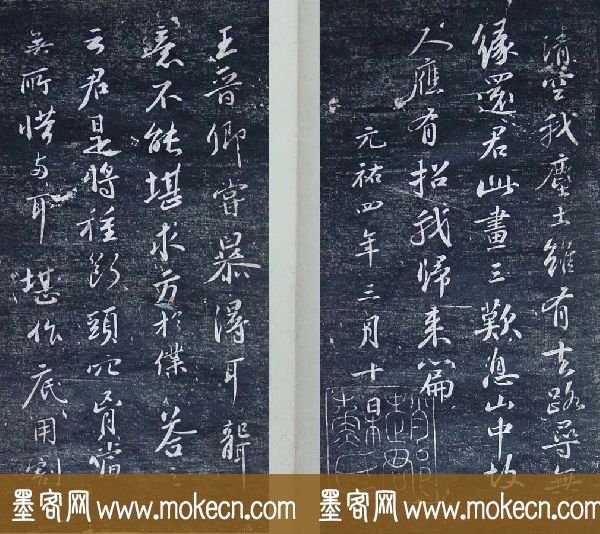 清空我塵土雖有去路尋無
緣還君此畫三歎息山中故
人應有招我歸來篇
元祐四年三月十日
王晉卿嘗暴得耳聾
意不能堪求方於僕答之
云君是將種斷頭穴胸當
無所惜兩耳堪作底用割
墨客网 www.mokecn.com
墨客网 www.mokecn.com